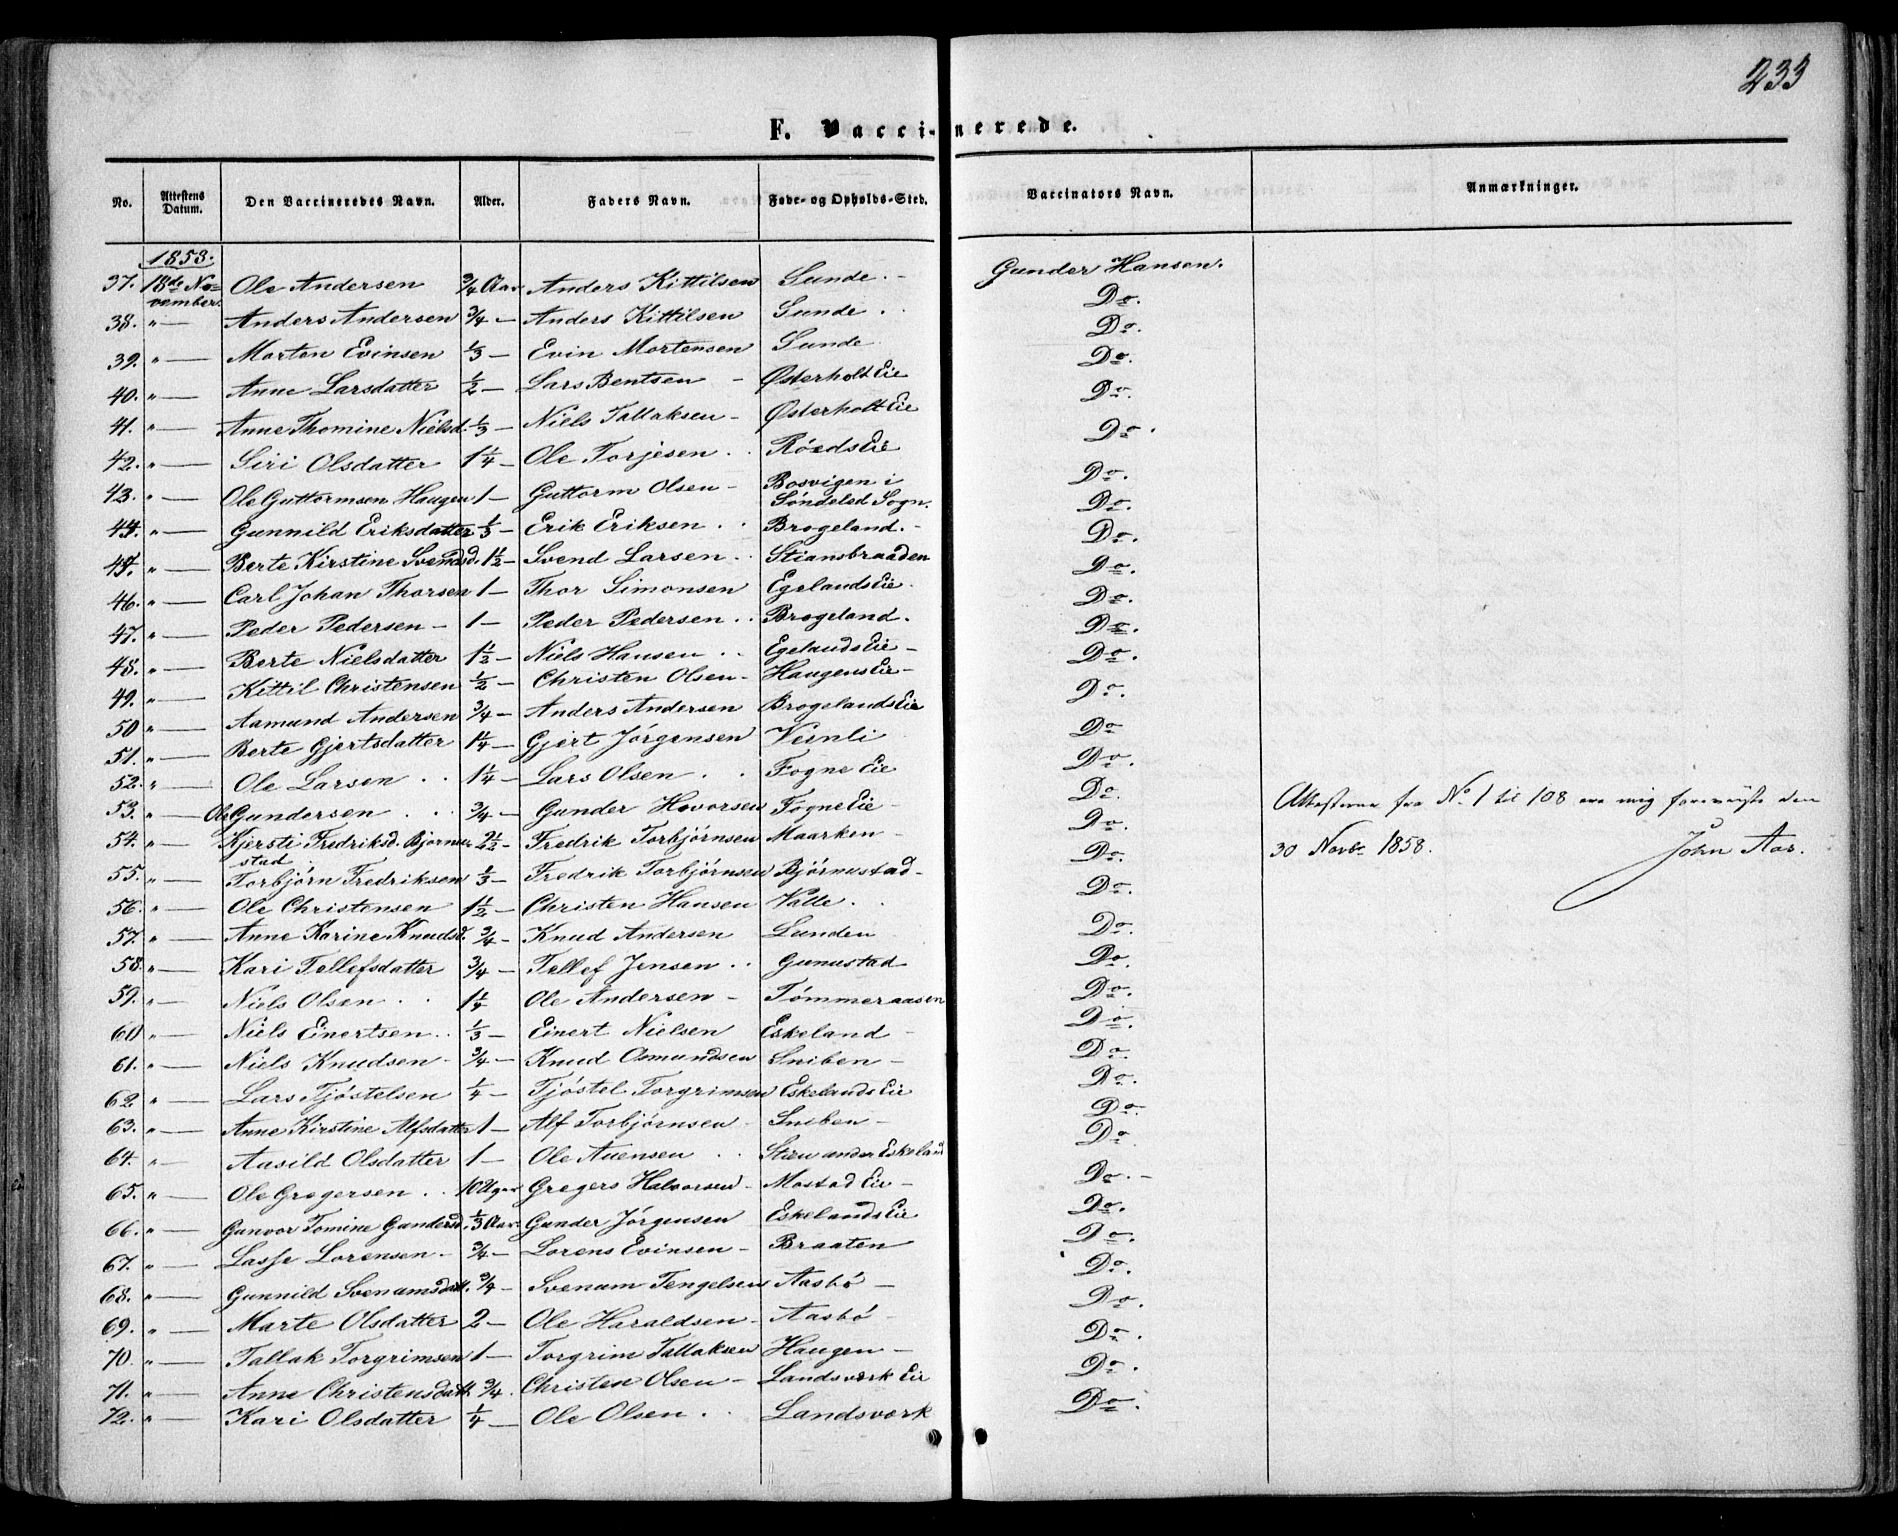 233
F. Vaccinerede.
No. Attestens Datum. Den Vaccineredes Navn. Alder. Faders Navn. Føde- og Opholds-Sted. Vaccinators Navn. Anmærkninger.
1858.
37. 18de November Ole Andersen 3/4 Aar Anders Kittilsen Sunde. - Gunder Hansen.
38. " — Anders Andersen 3/4 — Anders Kittilsen Sunde. Do.
39. " — Morten Evinsen 1/3 — Evin Mortensen Sunde Do.
40. " — Anne Larsdatter 1/2 — Lars Bentsen - Østerholt Eie Do.
41. " — Anne Thomine Nielsd. 1/3 — Niels Tallaksen - Østerholt Eie Do.
42. " — Siri Olsdatter 1 1/4 — Ole Torjesen Røeds Eie Do.
43. " — Ole Guttormsen Haugen 1 — Guttorm Olsen - Bosvigen i Søndeled Sogn. Do.
44. " — Gunnild Eriksdatter 1/3 — Erik Eriksen Brogeland. - Do.
45. " — Berte Kirstine Svendsd. 1 1/2 — Svend Larsen Stiansbraaden Do.
46. " — Carl Johan Thorsen 1 — Thor Simonsen Egelands Eie Do.
47. " — Peder Pedersen - 1 — Peder Pedersen Brogeland. Do.
48. " — Berte Nielsdatter 1 1/2 — Niels Hansen Egelands Eie - Do.
49. " — Kittil Christensen 1/2 — Christen Olsen - Haugens Eie - Do.
50 " — Aamund Andersen 3/4 — Anders Andersen Brogelands Eie Do.
51. " — Berte Gjertsdatter 1 1/4 — Gjert Jørgensen Veenli Do.
52. " — Ole Larsen 1 1/4 — Lars Olsen Fogne Eie Do.
53. " — Ole Gundersen 3/4 — Gunder Hovorsen Fogne Eie - Do.
54. " — Kjersti Fredriksd. Bjørnustad 2 1/2 — Fredrik Torbjørnsen Maarken - Do.
55. " — Torbjørn Fredriksen 1/3 — Fredrik Torbjørnsen Bjørnustad - Do.
56. " — Ole Christensen 1 1/2 — Christen Hansen Valle. Do.
57. " — Anne Karine Knudsd. 3/4 — Knud Andersen Lunden Do.
58. " — Kari Tellefsdatter 3/4 — Tellef Jensen Gunustad Do.
59. " — Niels Olsen 1 1/4 Ole Andersen - Tømmeraasen Do.
60 " — Niels Einertsen 1/3 — Einert Nielsen Eskeland - Do.
61. " — Niels Knudsen - 3/4 — Knud Osmundsen Sniben - Do.
62. " — Lars Tjøstelsen 1/4 — Tjøstel Torgrimsen Eskelands Eie Do.
63. " — Anne Kirstine Alfsdatter 1 — Alf Torbjørnsen Sniben - Do.
64. " — Aasild Olsdatter 1 — Ole Auensen Stien under Eskeland Do.
65. " — Ole Gregersen 10 Uger Gregers Halvorsen - Mostad Eie - Do. -
66. " — Gunvor Tomine Gundersd. 1/3 Aar Gunder Jørgensen Eskelands Eie Do.
67. " — Lasse Lorensen - 3/4 — Lorens Evinsen - Braaten Do.
68. " — Gunnild Svenumsdatt. 3/4 — Svenum Tengelsen Aasbø - Do.
69. " — Marte Olsdatter 2 — Ole Haraldsen - Aasbø - Do.
70. " — Tallak Torgrimsen 1 — Torgrim Tallaksen Haugen - Do.
71. " — Anne Christensdatt. 3/4. Christen Olsen - Landsværk Eie Do.
72. " — Kari Olsdatter 1/4 — Ole Olsen Landsværk Do.
Attesterne fra No. 1 til 108 ere mig foreviiste den
30 Novbr 1858. John Aas.